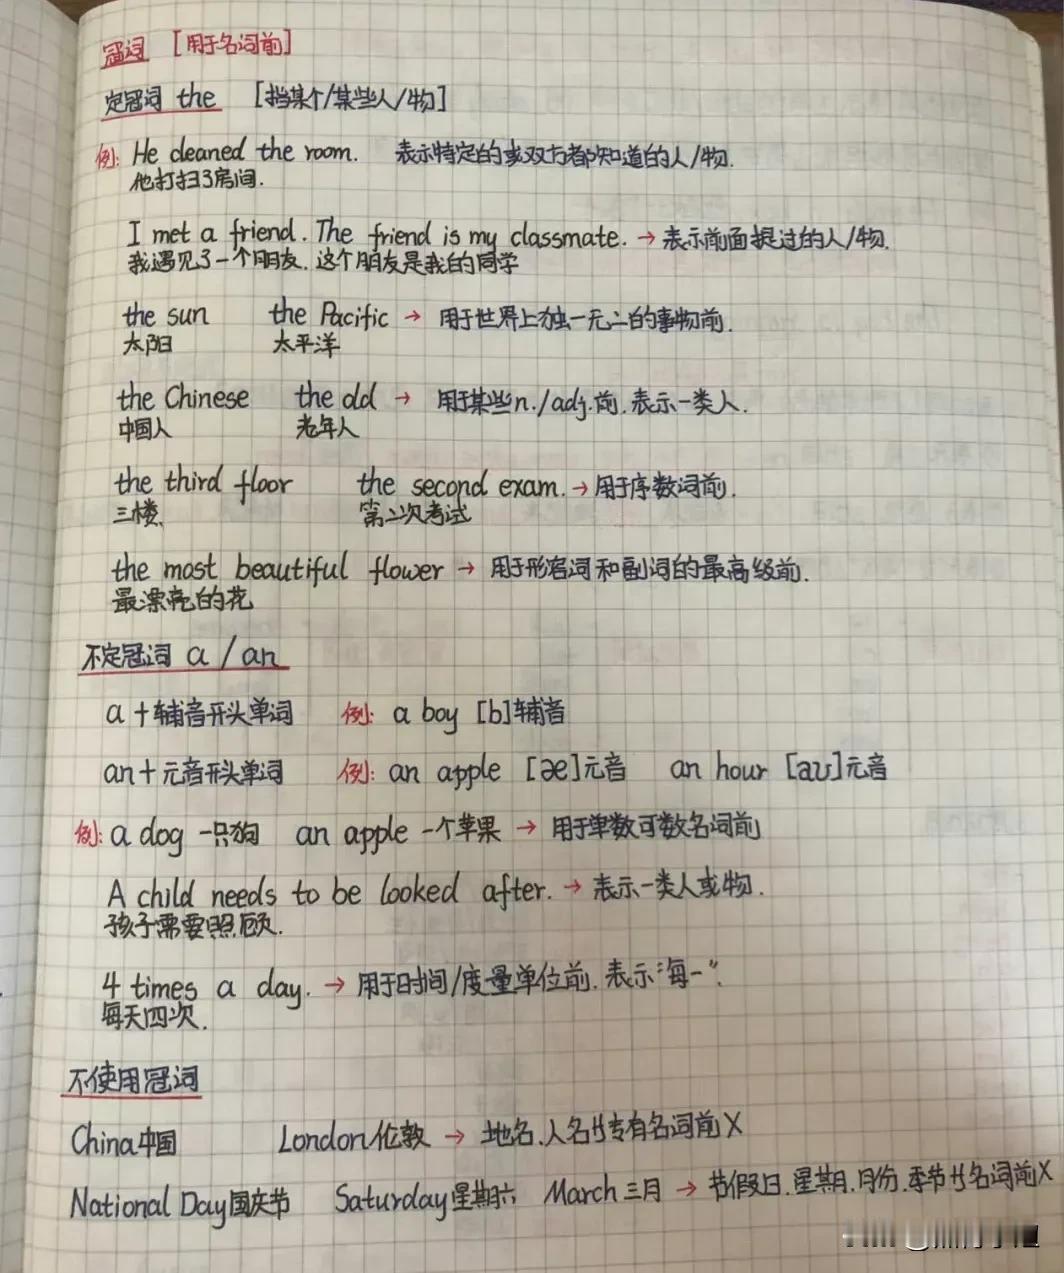 冠词 [用于名词前]
定冠词 the [指某个/某些人/物]
例: He cleaned the room. 表示特定的或双方都知道的人/物.
他打扫了房间.
I met a friend. The friend is my classmate. → 表示前面提过的人/物.
我遇见了一个朋友. 这个朋友是我的同学
the sun the Pacific → 用于世界上独一无二的事物前.
太阳 太平洋
the Chinese the old → 用于某些n./adj.前.表示一类人.
中国人 老年人
the third floor the second exam. → 用于序数词前.
三楼. 第二次考试
the most beautiful flower → 用于形容词和副词的最高级前.
最漂亮的花
不定冠词 a / an
a + 辅音开头单词 例: a boy [b]辅音
an + 元音开头单词 例: an apple [æ]元音 an hour [aʊ]元音
例: a dog 一只狗 an apple 一个苹果 → 用于单数可数名词前
A child needs to be looked after. → 表示一类人或物.
孩子需要照顾.
4 times a day. → 用于时间/度量单位前.表示“每一”.
每天四次.
不使用冠词
China中国 London伦敦 → 地名.人名等专有名词前X
National Day国庆节 Saturday星期六 March三月 → 节假日.星期.月份.季节等名词前X